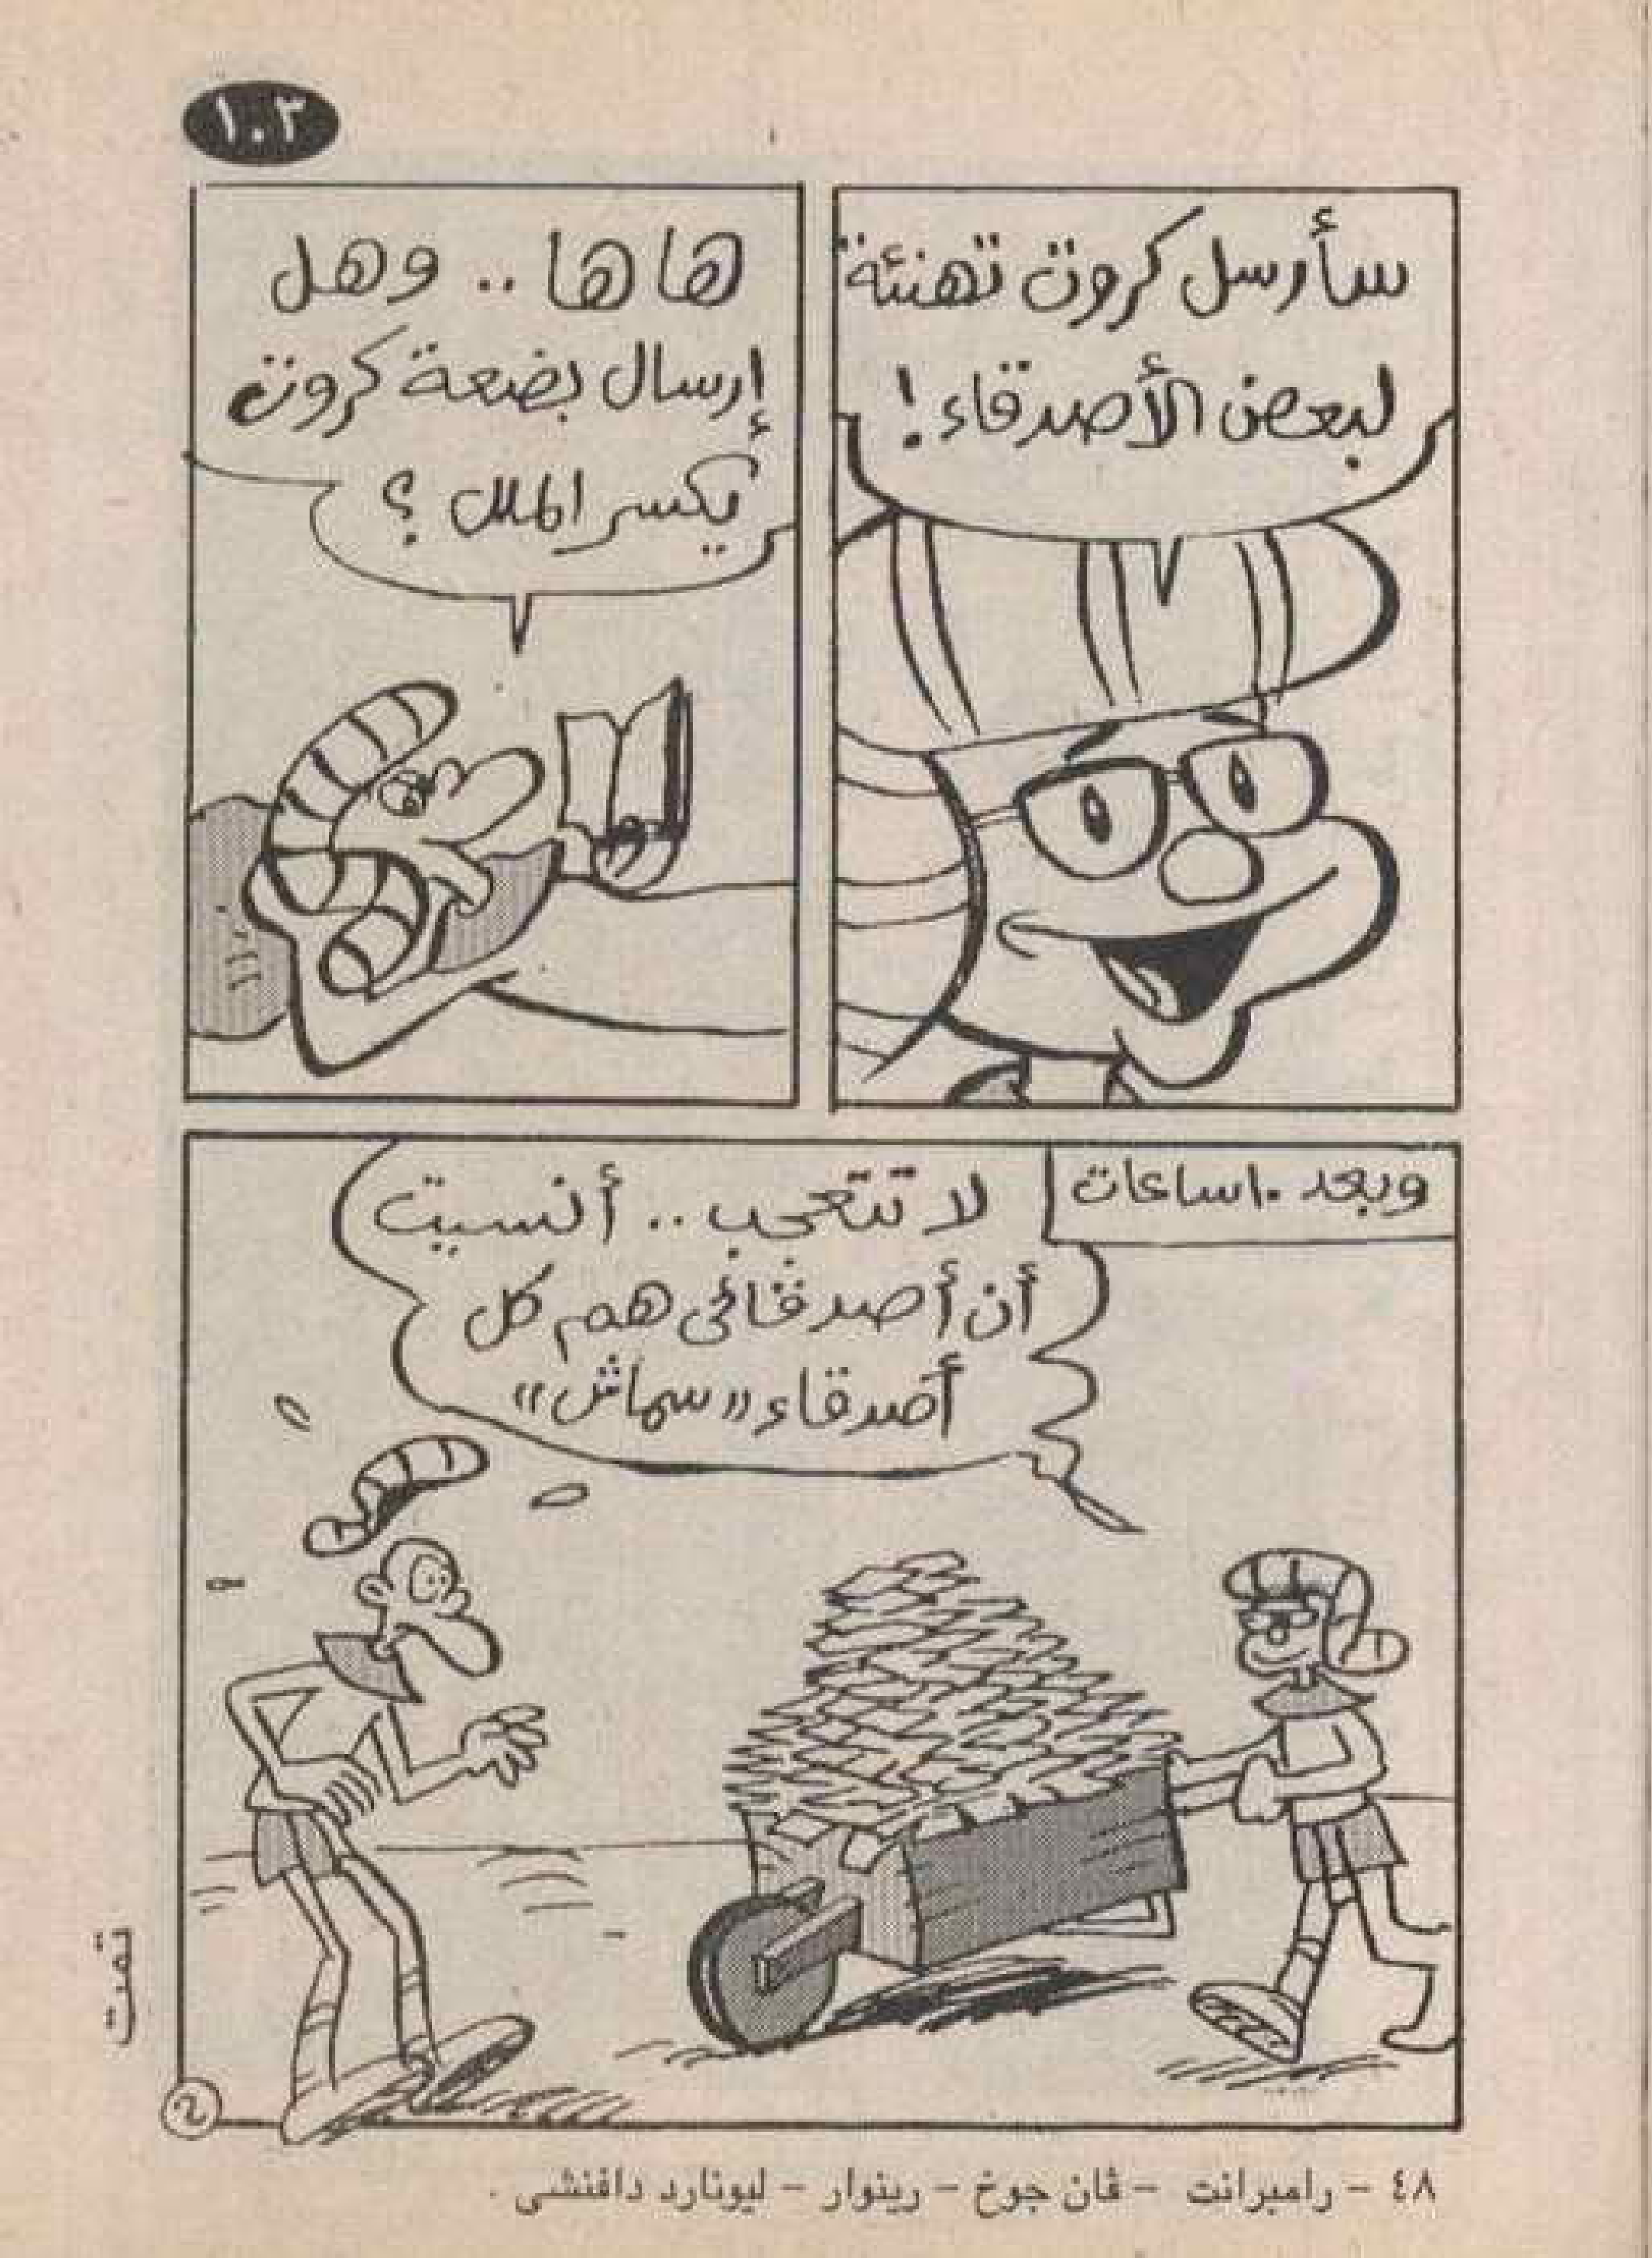 ١٠٣
سأرسل كروت تهنئة
لبعض الأصدقاء!
هاها.. وهل
إرسال بضعة كروت
يكسر الملل؟
وبعد ١٠ ساعات
لا تتعجب.. أنسيت
أن أصدقائى هم كل
أصدقاء «سماش»
تمت
2
٤٨ - رامبرانت - ڤان جوخ - رينوار - ليونارد دافنشى .